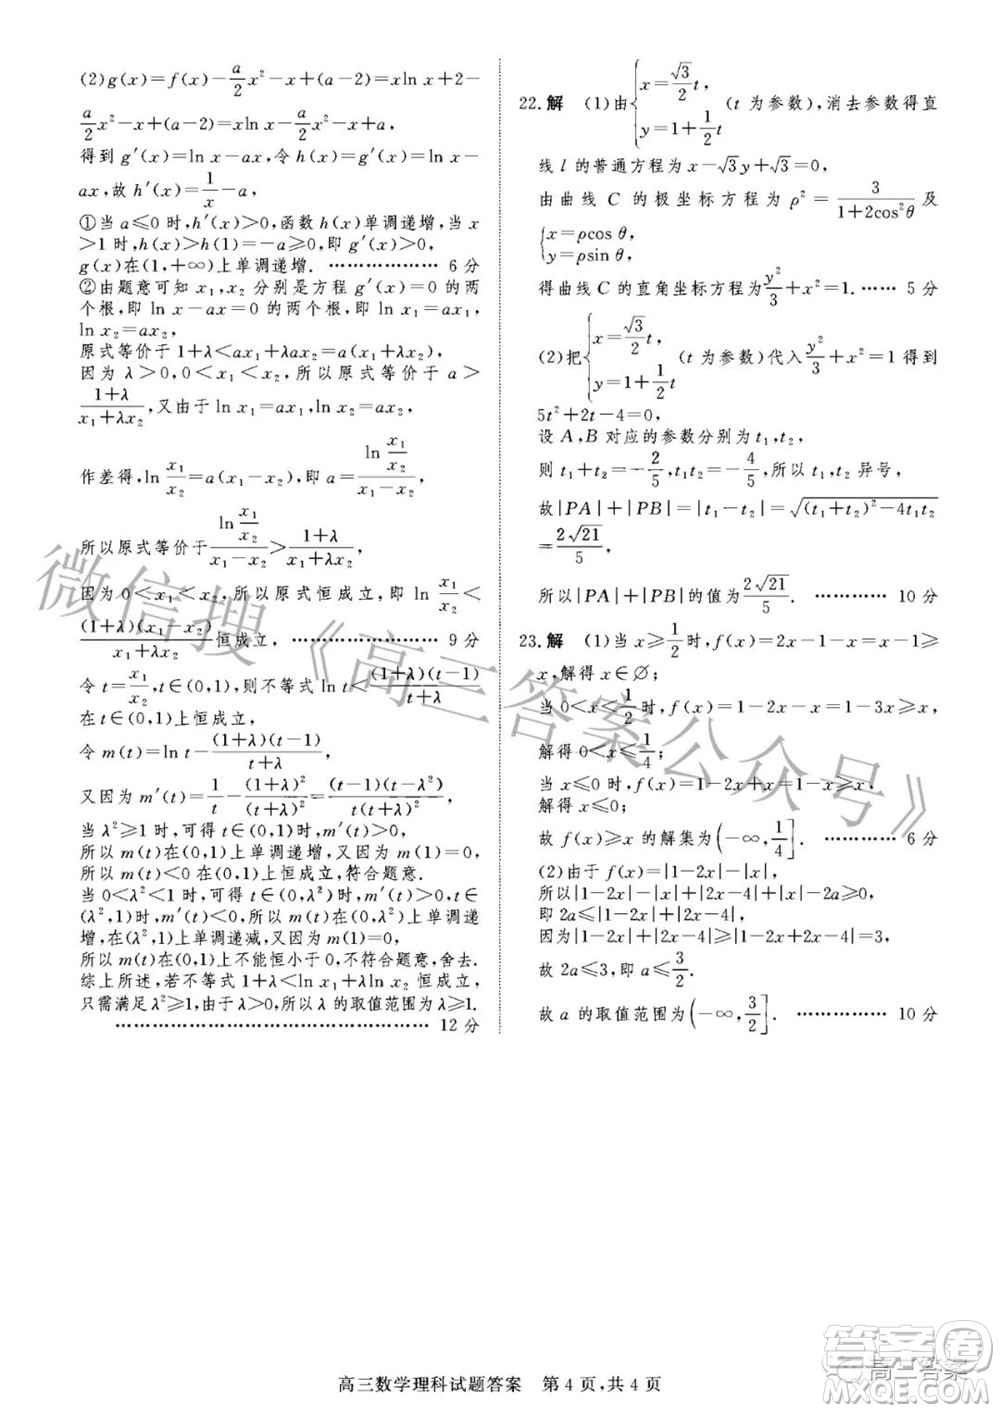 (2)g(x)=f(x)-\frac{a}{2}x²-x+(a-2)=xln x+2-
\frac{a}{2}x²-x+(a-2)=xln x-\frac{a}{2}x²-x+a,
得到 g′(x)=ln x-ax,令 h(x)=g′(x)=ln x-
ax,故 h′(x)=\frac{1}{x}-a,
①当 a≤0 时,h′(x)>0,函数 h(x)单调递增,当 x
>1 时,h(x)>h(1)=-a≥0,即 g′(x)>0,
g(x)在(1,+∞)上单调递增. ………………… 6 分
②由题意可知 x₁,x₂ 分别是方程 g′(x)=0 的两
个根,即 ln x-ax=0 的两个根,即 ln x₁=ax₁,
ln x₂=ax₂,
原式等价于 1+λ<ax₁+λax₂=a(x₁+λx₂),
因为 λ>0,0<x₁<x₂,所以原式等价于 a>
\frac{1+λ}{x₁+λx₂},又由于 ln x₁=ax₁,ln x₂=ax₂,
作差得,ln \frac{x₁}{x₂}=a(x₁-x₂),即 a=\frac{ln \frac{x₁}{x₂}}{x₁-x₂},
所以原式等价于\frac{ln \frac{x₁}{x₂}}{x₁-x₂}>\frac{1+λ}{x₁+λx₂},
因为 0<x₁<x₂,所以原式恒成立,即 ln \frac{x₁}{x₂}<
\frac{(1+λ)(x₁-x₂)}{x₁+λx₂}恒成立, ……………………… 9 分
令 t=\frac{x₁}{x₂},t∈(0,1),则不等式 ln t<\frac{(1+λ)(t-1)}{t+λ}
在 t∈(0,1)上恒成立,
令 m(t)=ln t-\frac{(1+λ)(t-1)}{t+λ},
又因为 m′(t)=\frac{1}{t}-\frac{(1+λ)²}{(t+λ)²}=\frac{(t-1)(t-λ²)}{t(t+λ)²},
当 λ²≥1 时,可得 t∈(0,1)时,m′(t)>0,
所以 m(t)在(0,1)上单调递增,又因为 m(1)=0,
所以 m(t)<0 在(0,1)上恒成立,符合题意.
当 0<λ²<1 时,可得 t∈(0,λ²)时,m′(t)>0,t∈
(λ²,1)时,m′(t)<0,所以 m(t)在(0,λ²)上单调递
增,在(λ²,1)上单调递减,又因为 m(1)=0,
所以 m(t)在(0,1)上不能恒小于 0,不符合题意,舍去.
综上所述,若不等式 1+λ<ln x₁+λln x₂ 恒成立,
只需满足 λ²≥1,由于 λ>0,所以 λ 的取值范围为 λ≥1.
……………………………………………… 12 分
22.解 (1)由{x=\frac{√3}{2}t, y=1+\frac{1}{2}t (t 为参数),消去参数得直
线 l 的普通方程为 x-√3y+√3=0,
由曲线 C 的极坐标方程为 ρ²=\frac{3}{1+2cos²θ}及
{x=ρcos θ,
y=ρsin θ,
得曲线 C 的直角坐标方程为\frac{y²}{3}+x²=1. …… 5 分
(2)把{x=\frac{√3}{2}t, y=1+\frac{1}{2}t (t 为参数)代入\frac{y²}{3}+x²=1 得到
5t²+2t-4=0,
设 A,B 对应的参数分别为 t₁,t₂,
则 t₁+t₂=-\frac{2}{5},t₁t₂=-\frac{4}{5},所以 t₁,t₂ 异号,
故|PA|+|PB|=|t₁-t₂|=√((t₁+t₂)²-4t₁t₂)
=\frac{2√21}{5},
所以|PA|+|PB|的值为\frac{2√21}{5}. ………… 10 分
23.解 (1)当 x≥\frac{1}{2}时,f(x)=2x-1-x=x-1≥
x,解得 x∈∅;
当 0<x<\frac{1}{2}时,f(x)=1-2x-x=1-3x≥x,
解得 0<x≤\frac{1}{4};
当 x≤0 时,f(x)=1-2x+x=1-x≥x,
解得 x≤0;
故 f(x)≥x 的解集为(-∞,\frac{1}{4}]. ………… 6 分
(2)由于 f(x)=|1-2x|-|x|,
所以|1-2x|-|x|+|2x-4|+|x|-2a≥0,
即 2a≤|1-2x|+|2x-4|,
因为|1-2x|+|2x-4|≥|1-4|=3,
故 2a≤3,即 a≤\frac{3}{2}.
故 a 的取值范围为(-∞,\frac{3}{2}]. …………… 10 分
微信搜《高三答案公众号》
高三数学理科试题答案 第 4 页,共 4 页
答案圈
高三答案
MXQE.COM